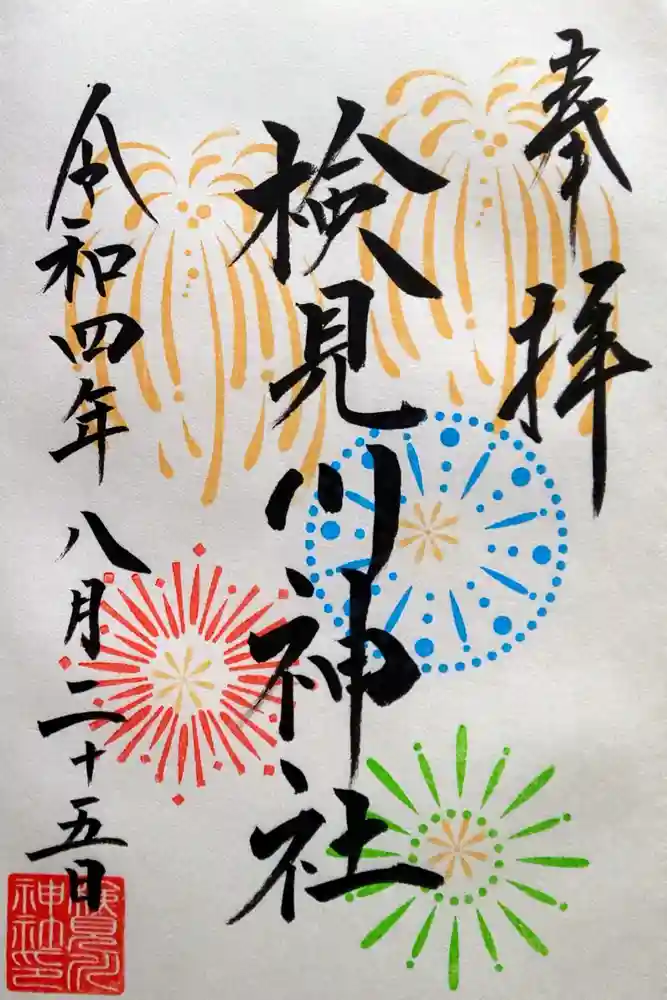 奉拝
検見川神社
令和四年八月二十五日
検見川
神社印